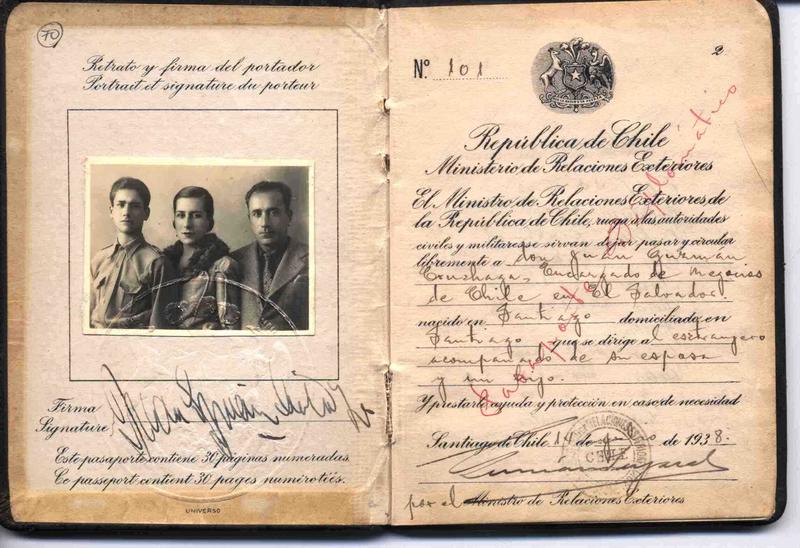 70
Retrato y firma del portador
Portrait et signature du porteur
Firma
Signature
Este pasaporte contiene 30 páginas numeradas.
Ce passeport contient 30 pages numérotiés.
UNIVERSO
2
Nº 101
República de Chile
Ministerio de Relaciones Exteriores
El Ministro de Relaciones Exteriores de
la República de Chile, ruega a las autoridades
civiles y militares se sirvan dejar pasar y circular
libremente a don Juan Guzmán
Cruchaga, Encargado de Negocios
de Chile en El Salvador.
nacido en Santiago domiciliado en
Santiago que se dirige al extranjero
acompañado de su esposa
y un hijo.
Y prestarle ayuda y protección en caso de necesidad
Santiago de Chile 14 de de 1938.
por el Ministro de Relaciones Exteriores
Diplomático
CHILE